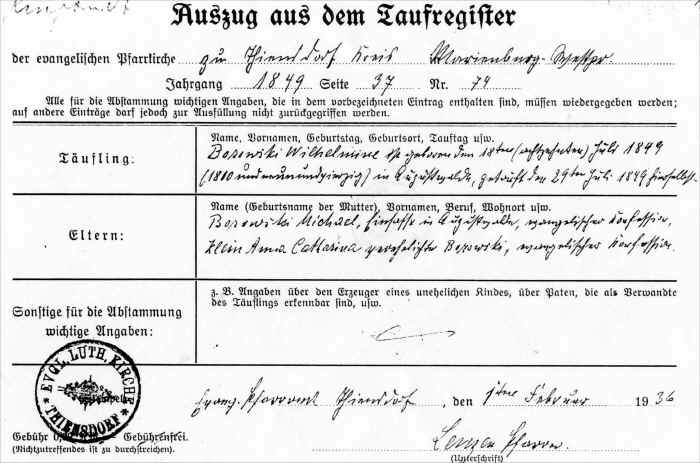 Auszug aus dem Taufregister
der evangelischen Pfarrkirche zu Thiensdorf Kreis Marienburg-Westpr.
Jahrgang 1849 Seite 37 Nr. 74
Alle für die Abstammung wichtigen Angaben, die in dem vorbezeichneten Eintrag enthalten sind, müssen wiedergegeben werden;
auf andere Einträge darf jedoch zur Ausfüllung nicht zurückgegriffen werden.
Täufling:
Name, Vornamen, Geburtstag, Geburtsort, Tauftag usw.
Borowski Wilhelmine ist geboren den 18ten (achtzehnten) Juli 1849
(1800 und neunundvierzig) in Augustwalde, getauft den 29ten Juli 1849 hierselbst.
Eltern:
Name (Geburtsname der Mutter), Vornamen, Beruf, Wohnort usw.
Borowski Michael, Einsasse in Augustwalde, evangelischer Konfession,
Klein Anna Catharina verehelichte Borowski, evangelischer Konfession.
Sonstige für die Abstammung
wichtige Angaben:
z. B. Angaben über den Erzeuger eines unehelichen Kindes, über Paten, die als Verwandte
des Täuflings erkennbar sind, usw.
EVGL. LUTH. KIRCHE
THIENSDORF
Evang. Pfarramt Thiensdorf, den 1ten Februar 1936
Gebühr — Gebührenfrei.
(Nichtzutreffendes ist zu durchstreichen).
Pfarrer.
(Unterschrift)